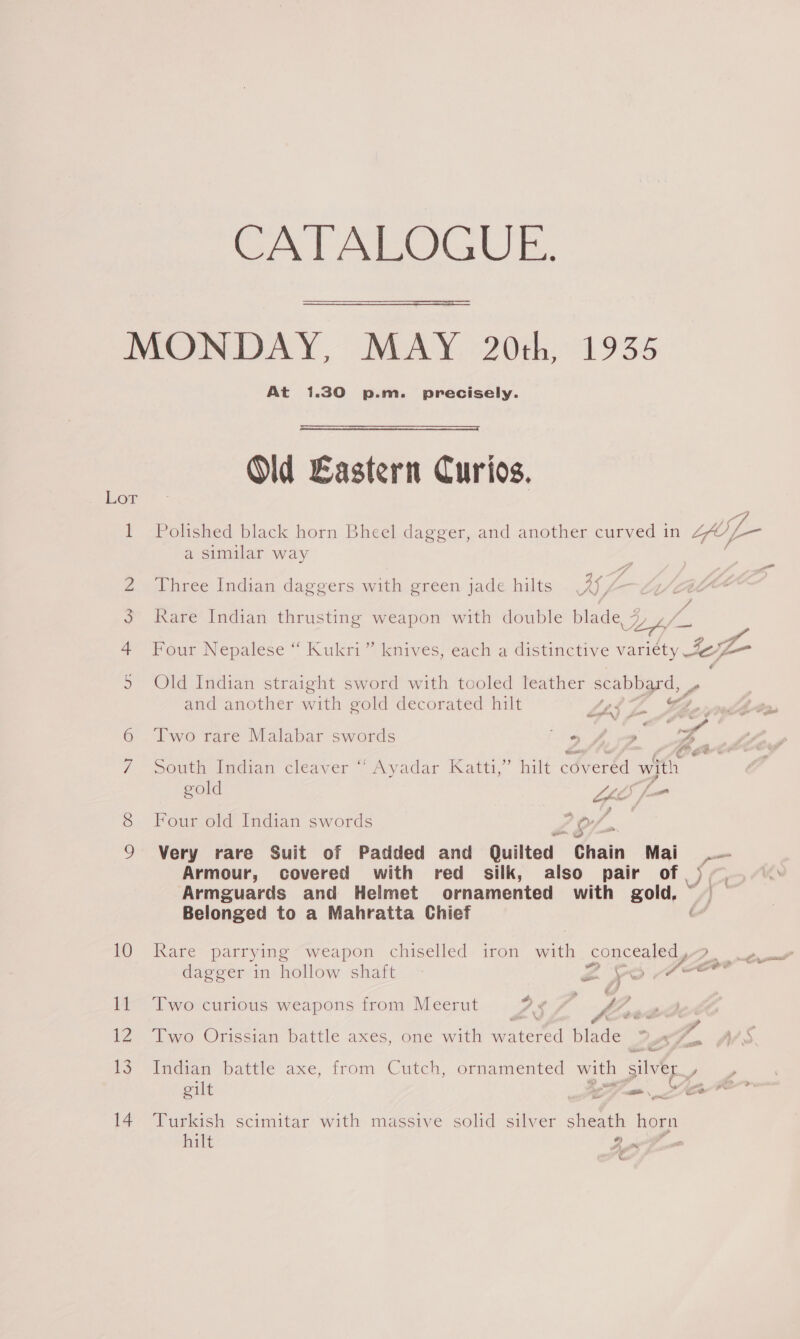 CATALOGUE.
MONDAY, MAY 20th, 1935
At 1.30 p.m. precisely.
Old Eastern Curios.
Lot
1 Polished black horn Bheel dagger, and another curved in
a similar way
2 Three Indian daggers with green jade hilts
3 Rare Indian thrusting weapon with double blade,
4 Four Nepalese “ Kukri ” knives, each a distinctive variety
5 Old Indian straight sword with tooled leather scabbard,
and another with gold decorated hilt
6 Two rare Malabar swords
7 South Indian cleaver “ Ayadar Katti,” hilt covered with
gold
8 Four old Indian swords
9 Very rare Suit of Padded and Quilted Chain Mai
Armour, covered with red silk, also pair of
Armguards and Helmet ornamented with gold.
Belonged to a Mahratta Chief
10 Rare parrying weapon chiselled iron with concealed
dagger in hollow shaft
11 Two curious weapons from Meerut
12 Two Orissian battle axes, one with watered blade
13 Indian battle axe, from Cutch, ornamented with silver
gilt
14 Turkish scimitar with massive solid silver sheath horn
hilt